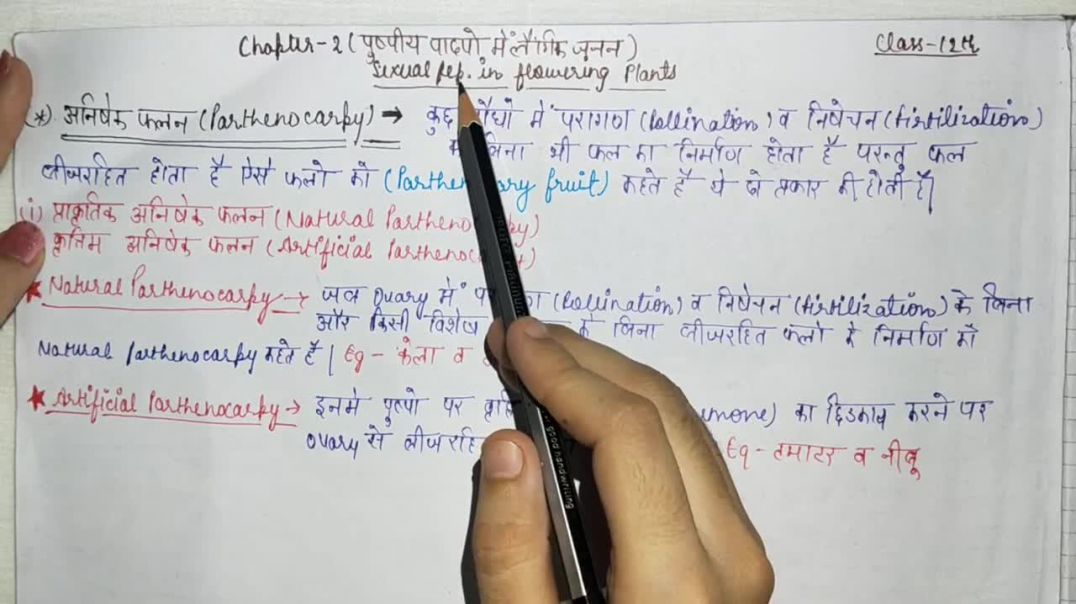 Chapter-2 (पुष्पीय पादपो में लैंगिक जनन)
Class-12th
Sexual Rep. in flowering Plants
(*) अनिषेक फलन (Parthenocarpy) → कुछ पौधो में परागण (Pollination) व निषेचन (Firtilization)
बिना भी फल का निर्माण होता है परन्तु फल
बीजरहित होता है ऐसे फलो को (Parthen ary fruit) कहते है ये दो प्रकार की होती है।
(i) प्राकृतिक अनिषेक फलन (Natural Partheno py)
कृत्रिम अनिषेक फलन (Artificial Parthenoc
★ Natural Parthenocarpy → जब Ovary में (Pollination) व निषेचन (Firtilization) के बिना
और किसी विशेष के बिना बीजरहित फलो के निर्माण को
Natural Parthenocarpy कहते है | Eg - केला व
★ Artificial Parthenocarpy → इनमे पुष्पो पर mone) का छिडकाव करने पर
Ovary से बीजरहि Eg - टमाटर व नीबू